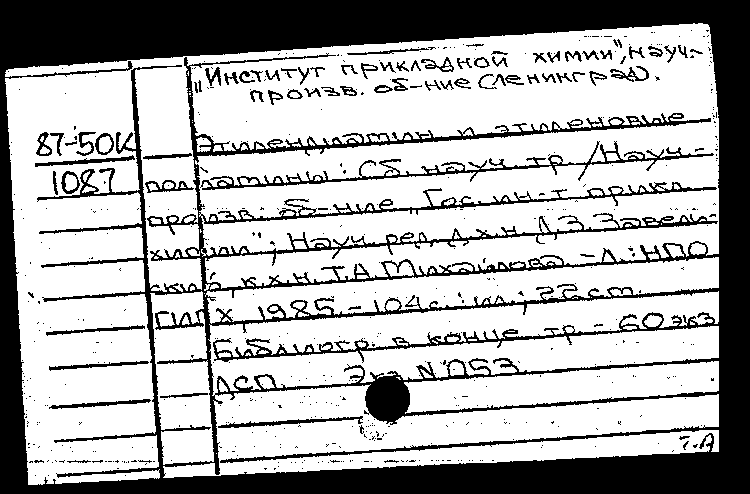 „Институт прикладной химии", науч.-
произв. об-ние (Ленинград).
87-50К
1087
Этилендиамин и этиленовые
полиамины: Сб. науч. тр. / Науч.-
произв. об-ние „Гос. ин-т прикл.
химии"; Науч. ред. д.х.н. Д.З. Завель-
ский, к.х.н. Т.А. Михайлова. - Л.: НПО
ГИПХ, 1985. - 104 с.: ил.; 22 см.
Библиогр. в конце тр. - 60 экз
ДСП. Экз. N 053.
т.А